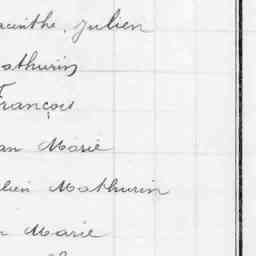 acinthe, Julien
athurin
François
an Marie
lien Mathurin
n Marie